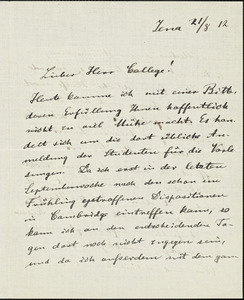 Jena 21/8 12
Lieber Herr College!
Heute komme ich mit einer Bitte,
deren Erfüllung Ihnen hoffentlich
nicht zu viel Mühe macht. Es han-
delt sich um die dort übliche An-
meldung der Studenten für die Vorle-
sungen. Da ich erst in der letzten
Septemberwoche nach den schon im
Frühling getroffenen Dispositionen
in Cambridge eintreffen kann, so
kann ich an den entscheidenden Ta-
gen dort noch nicht zugegen sein,
und da ich ausserdem mit den gan